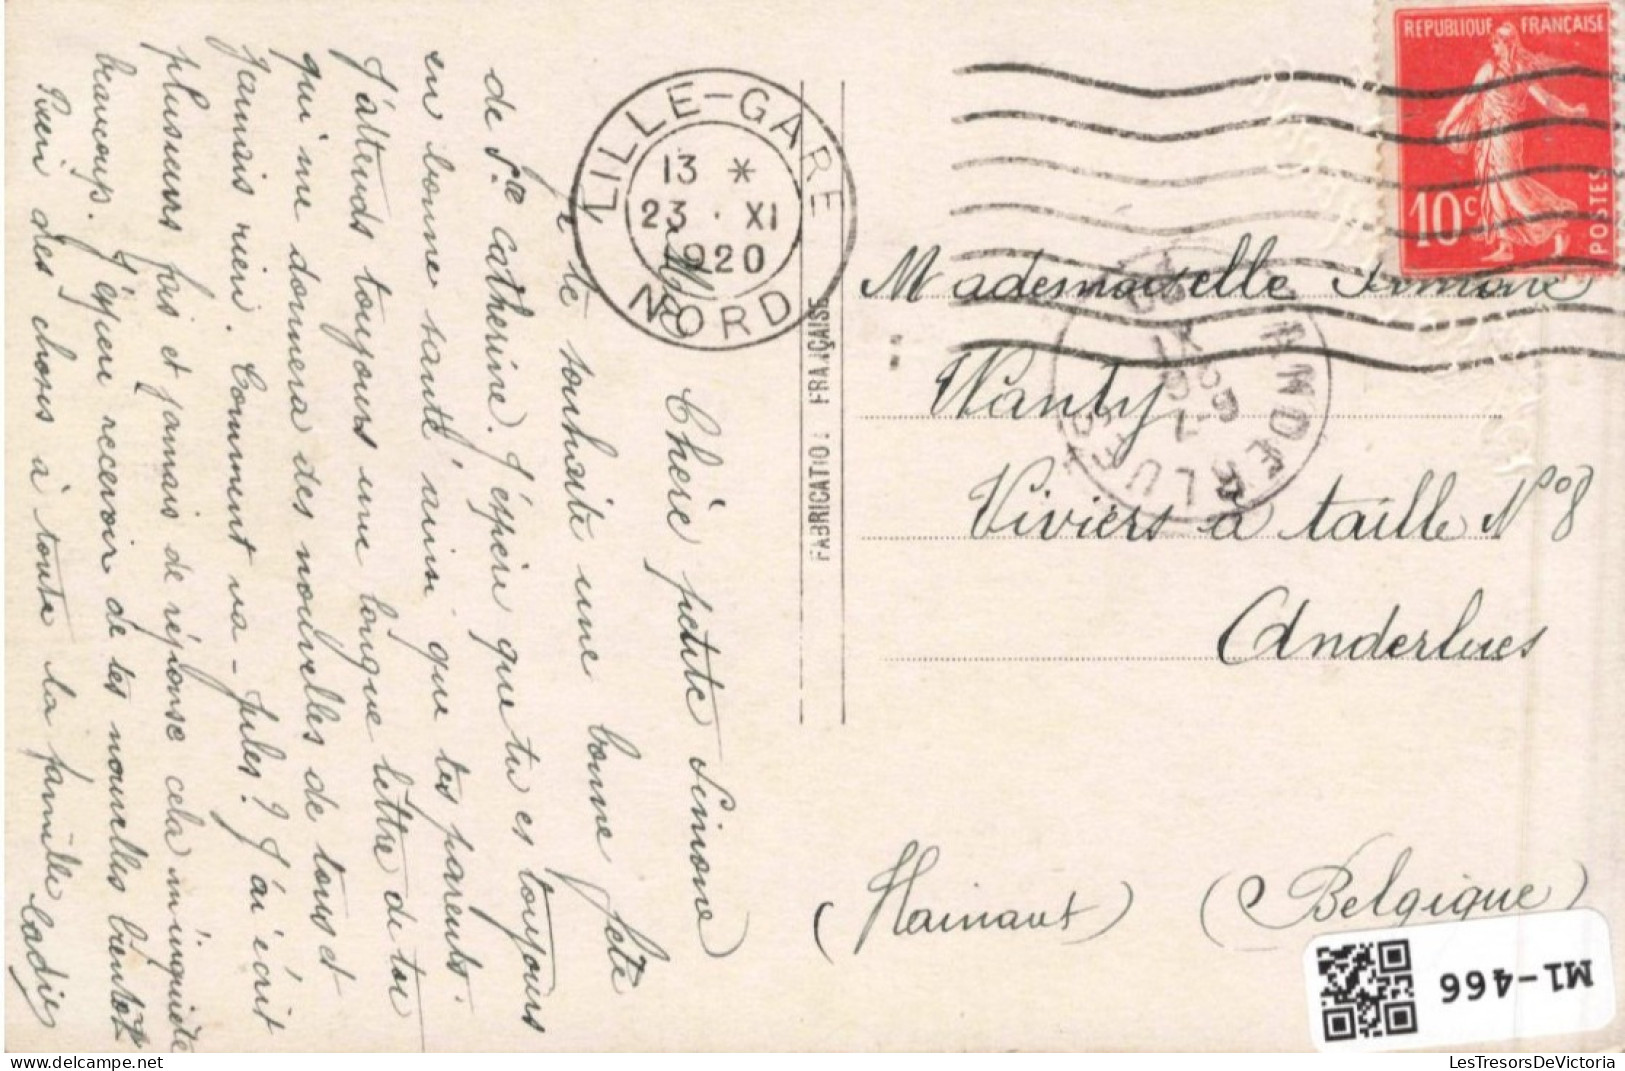 Chère petite Simone
Je te souhaite une bonne fête
de Ste Catherine. J'éspère que tu es toujours
en bonne santé ainsi que tes parents.
J'attends toujours une longue lettre de toi
qui me donnera des nouvelles de tous et
jamais rien. Comment va-Jules? J'ai écrit
plusieurs fois et jamais de réponse cela m'inquiète
beaucoup. J'éspère recevoir de tes nouvelles bientôt
Bien des choses à toute la famille
LILLE-GARE
13 *
23 · XI
1920
NORD
FABRICATIO: FRANÇAISE
REPUBLIQUE FRANÇAISE
10c
POSTES
ANDERLUES
Mademoiselle Simone
Wanty
Viviers à taille N° 8
Anderlues
(Hainaut) (Belgique)
M1-466
LesTresorsDeVictoria